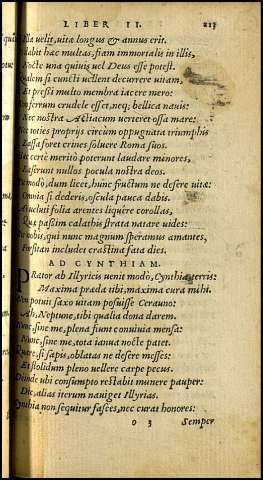 LIBER II. 213
lla uelit, uitæ longus & annus erit.
dabit hæc multas, fiam immortalis in illis,
Nocte una quiuis uel Deus esse potest.
alem si cuncti uellent decurrere uitam,
Et pressi multo membra iacere mero:
on ferrum crudele esset, neq; bellica nauis:
Nec nostra Actiacum uerteret ossa mare:
ec toties proprijs circùm oppugnata triumphis
Lassa foret crines soluere Roma suos.
ec certè meritò poterunt laudare minores,
Læserunt nullos pocula nostra deos.
modò, dum licet, hunc fructum ne desere uitæ:
Omnia si dederis, oscula pauca dabis.
Ac ueluti folia arentes liquere corollas,
Quæ passim calathis strata natare uides:
ic nobis, qui nunc magnum speramus amantes,
Forsitan includet crastina fata dies.
AD CYNTHIAM.
Prætor ab Illyricis uenit modò, Cynthia, terris:
Maxima præda tibi, maxima cura mihi.
Non potuit saxo uitam posuisse Cerauno:
Ah, Neptune, tibi qualia dona darem.
Nunc, sine me, plena fiunt conuiuia mensa:
Nunc, sine me, tota ianua nocte patet.
Quare, si sapis, oblatas ne desere messes:
Et stolidum pleno uellere carpe pecus.
Deinde ubi consumpto restabit munere pauper:
Dic, alias iterum nauiget Illyrias.
Cynthia non sequitur fasces, nec curat honores:
o 3 Semper